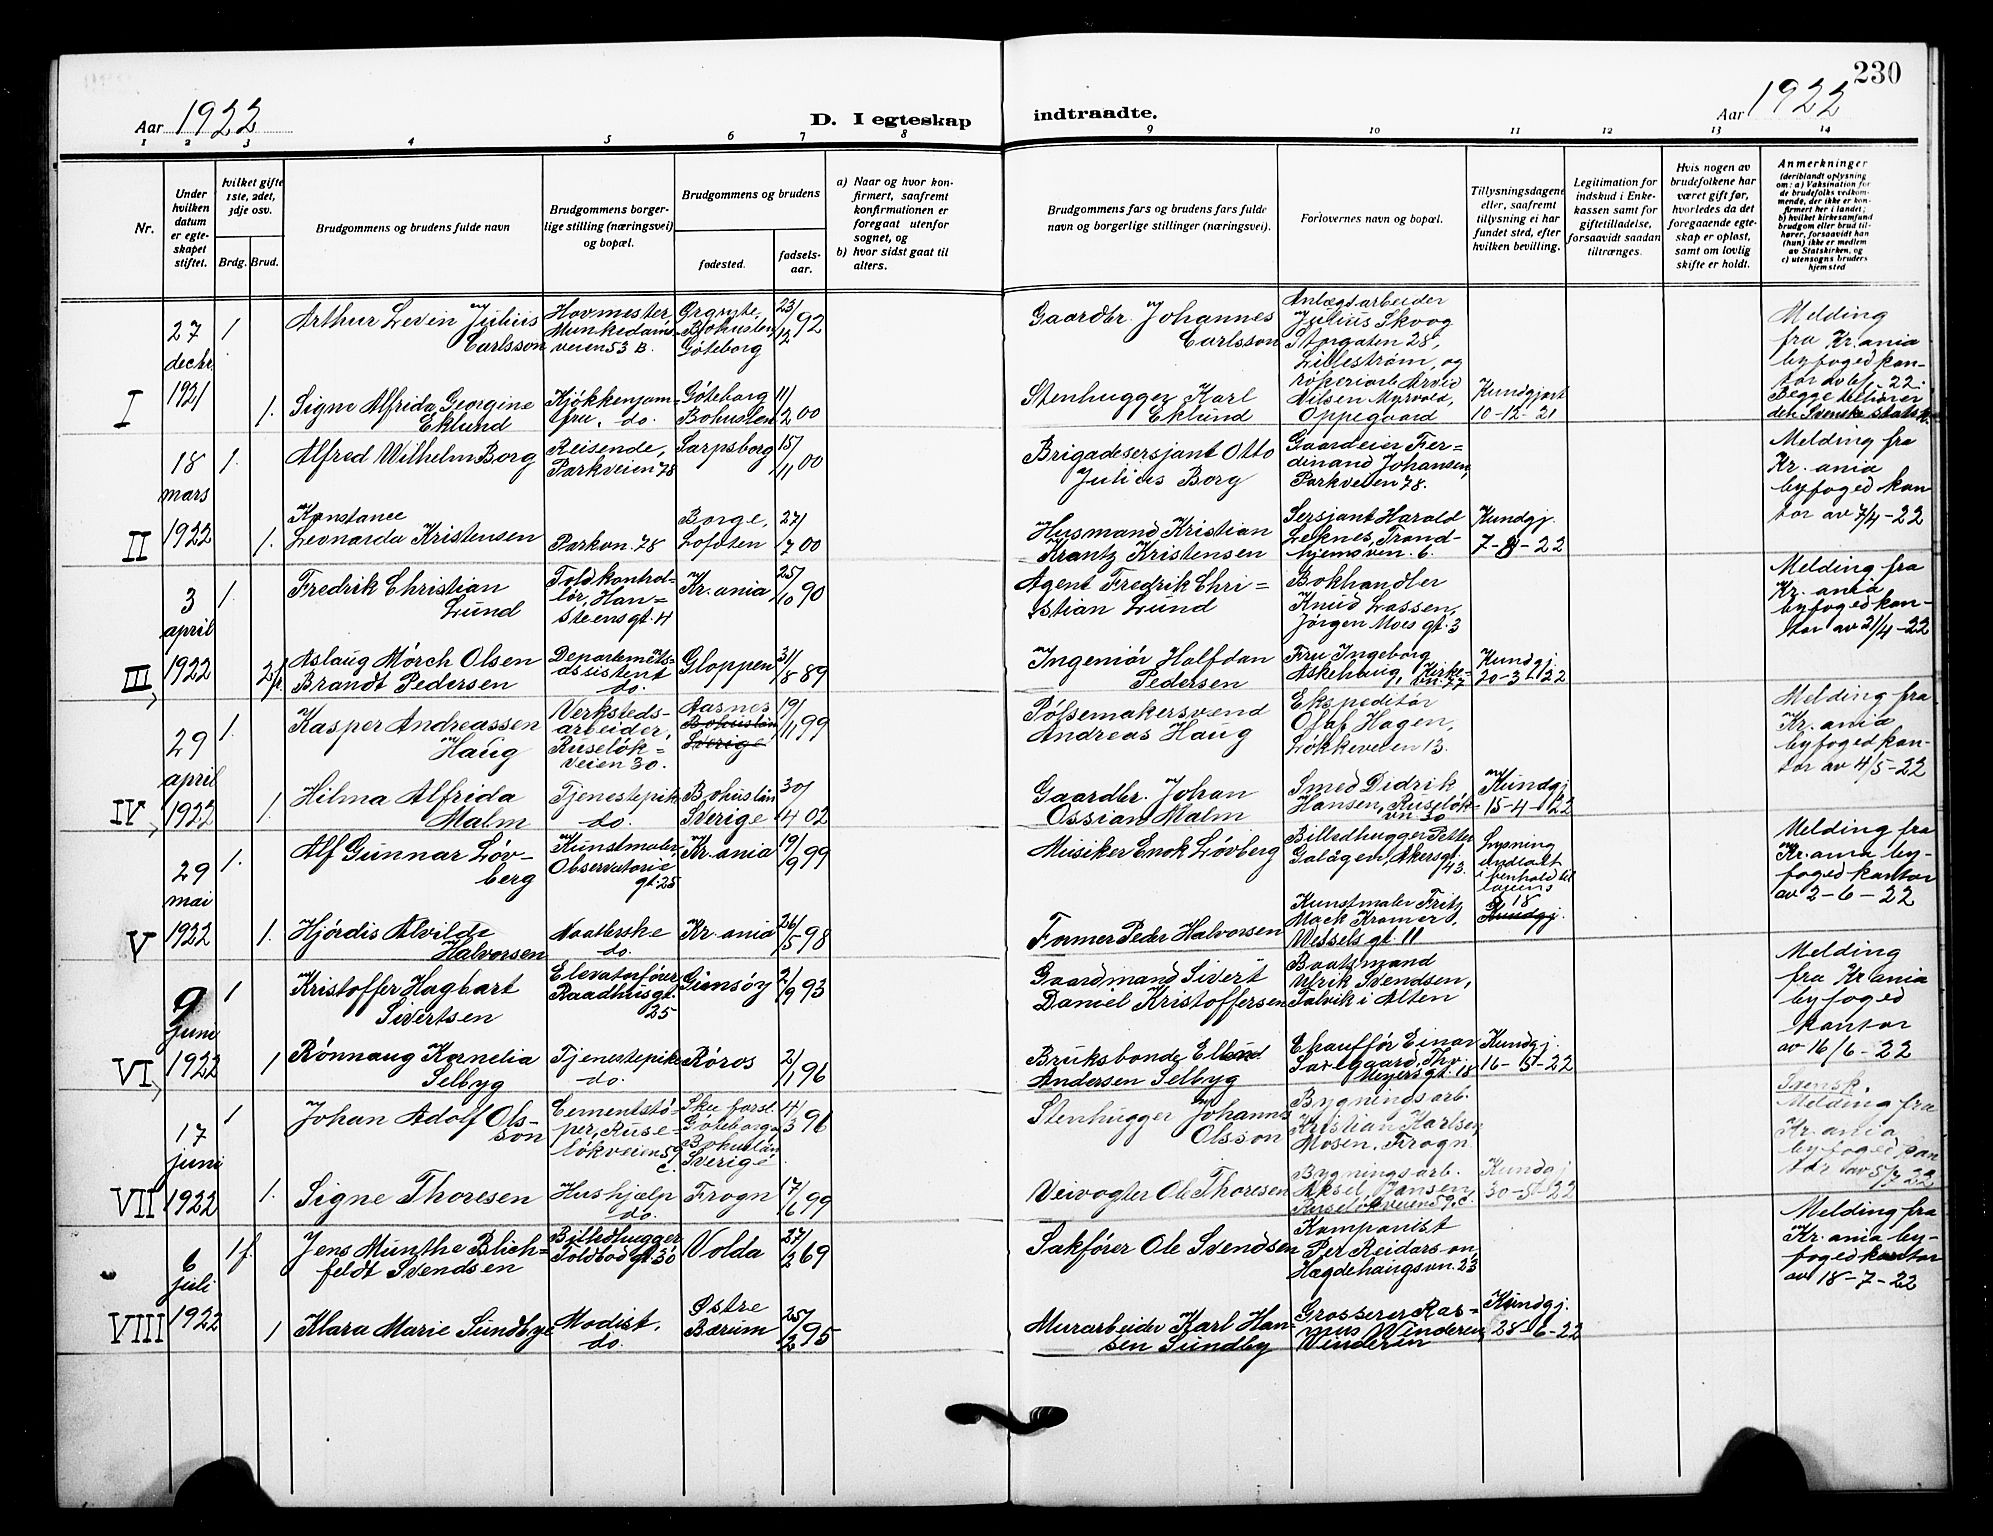 230
Aar 1922
D. I egteskap indtraadte.
Aar 1922
1 2 3 4 5 6 7 8 9 10 11 12 13 14
Nr.
Under hvilken datum er egteskapet stiftet.
hvilket gifte 1ste, 2det, 3dje osv.
Brdg. Brud.
Brudgommens og brudens fulde navn
Brudgommens borgerlige stilling (næringsvei) og bopæl.
Brudgommens og brudens
fødested.
fødsels-aar.
a) Naar og hvor konfirmert, saafremt konfirmationen er foregaat utenfor sognet, og
b) hvor sidst gaat til alters.
Brudgommens fars og brudens fars fulde navn og borgerlige stillinger (næringsvei).
Forlovernes navn og bopæl.
Tillysningsdagene eller, saafremt tillysning ei har fundet sted, efter hvilken bevilling.
Legitimation for indskud i Enkekassen samt for giftetilladelse, forsaavidt saadan tiltrænges.
Hvis nogen av brudefolkene har været gift før, hvorledes da det foregaaende egteskap er opløst, samt om lovlig skifte er holdt.
Anmerkninger
(deriblandt oplysning om: a) Vaksination for de brudefolks vedkommende, der ikke er konfirmert her i landet; b) hvilket kirkesamfund brudgom eller brud tilhører, forsaavidt han (hun) ikke er medlem av Statskirken, og c) utensogns bruders hjemsted
I
27 decbr. 1921
1
Arthur Levin Julius Carlsson
Hovmester, Munkedamsveien 53 B.
Örgryte, Bohuslen Göteborg
23/12 92
Gaardbr. Johannes Carlsson
Anlægsarbeider Julius Skoog Storgaten 28, Lillestrøm, og
1.
Signe Alfrida Georgine Eklund
Kjøkkenjomfru, do.
Göteborg Bohuslen
11/2 00
Stenhugger Karl Eklund
Nilsen Myrvold, Oppegaard
Kundgjort 10-12-21
Melding fra Kr.ania byfogedkantor av 6/1 22. Begge tilhører den Svenske statsk
II
18 mars 1922
1.
Alfred Wilhelm Borg
Reisende, Parkveien 78
Sarpsborg
15/11 00
Brigadesersjant Otto Julius Borg
Gaardeier Ferdinand Johansen, Parkveien 78.
1.
Konstance Leonarda Kristensen
Parkvn. 78
Borge, Lofoten
27/7 00
Husmand Kristian Krantz Kristensen
Sersjant Harald Leknes, Trondhjemsven. 6.
Kundgj. 7-3-22
Melding fra Kr.ania byfogedkantor av 7/4-22
III
3 april 1922
1.
Fredrik Christian Lund
Toldkontrollør, Hansteensgt. 4
Kr.ania
25/10 90
Agent Fredrik Christian Lund
Bokhandler Knud Lassen, Jørgen Moes gt. 3
2 f.
Aslaug Mörch Olsen Brandt Pedersen
Departemetsassistent do.
Gloppen
31/8 89
Ingeniör Halfdan Pedersen
Fru Ingeborg Askehaug, Kirkevn. 77
Kundgj. 20-3-22
Melding fra Kr.ania byfogedkantor av 21/4-22
IV
29 april 1922
1.
Kasper Andreassen Haug
Verkstedsarbeider, Ruseløkveien 30.
Aasnes Bohuslän Sverige
19/11 99
Pölsemakersvend Andreas Haug
Ekspeditör Olaf Hagen, Løkkeveien 13.
1.
Hilma Alfrida Malm
Tjenestepik do.
Bohuslän Sverige
30/4 02
Gaardbr. Johan Ossian Malm
Smed Didrik Hansen, Ruseløkvn 30
Kundgj. 15-4-22
Melding fra Kr.ania byfogedkantor av 4/5-22
V
29 mai 1922
1.
Alf Gunnar Lövberg
Kunstmaler, Observatoriegt. 25
Kr.ania
19/9 99
Musiker Enok Lövberg
Billedhugger Petter Akersgt. 43.
Lysning undlatt i henhold til lovens § 18
1.
Hjördis Alvilde Halvorsen
do.
Kr.ania
26/5 98
Former Peder Halvorsen
Kunstmaler Fritz Mack Kramer, Wessels gt. 11
Kundgj.
Melding fra Kr.ania byfogedkantor av 2-6-22
VI
9 juni 1922
1
Kristoffer Hagbart Sivertsen
Elevatorfører, Raadhusgt. 25
Gimsöy
2/9 93
Gaardmand Sivert Daniel Kristoffersen
Baatsmand Ulrik Svendsen, Talvik i Alten
1
Rønnaug Kornelia Selbyg
Tjenestepike do.
Röros
2/1 96
Bruksbonde Ellend Andersen Selbyg
Chauffør Einar Thv. Meyersgt. 18
Kundgj. 16-5-22
Melding fra Kr.ania byfoged kantor av 16/6-22
VII
17 juni 1922
1
Johan Adolf Olsson
Cementstøper, Ruseløkveien 59 c.
Skee forsl. Göteborg o Bohuslän Sverige
4/3 96
Stenhugger Johannes Olsson
Bygningsarb. Kristian Karlsen, Mosen, Frogn.
1.
Signe Thoresen
Hushjælp do.
Frogn
17/6 99
Veivogter Ole Thoresen
Bygningsarb. Aksel Jansen, Ruseløkveien 59 c.
Kundgj 30-5-22
Svensk. Melding fra Kr.ania byfogedkantor av 5/7 22
VIII
6 juli 1922
1 f.
Jens Munthe Blichfeldt Svendsen
Billedhugger Toldbodgt. 30
Volda
27/2 69
Sakförer Ole Svendsen
Komponist Per Reidarson, Hægdehaugsvn. 23
1
Klara Marie Sundbye
Modist, do.
Østre Bærum
25/12 95
Murarbeider Karl Hansen Sundby
Grosserer Rasmus Winderen, Vinderen
Kundgj. 28-6-22
Melding fra Kr.ania byfogedkantor av 18-7-22